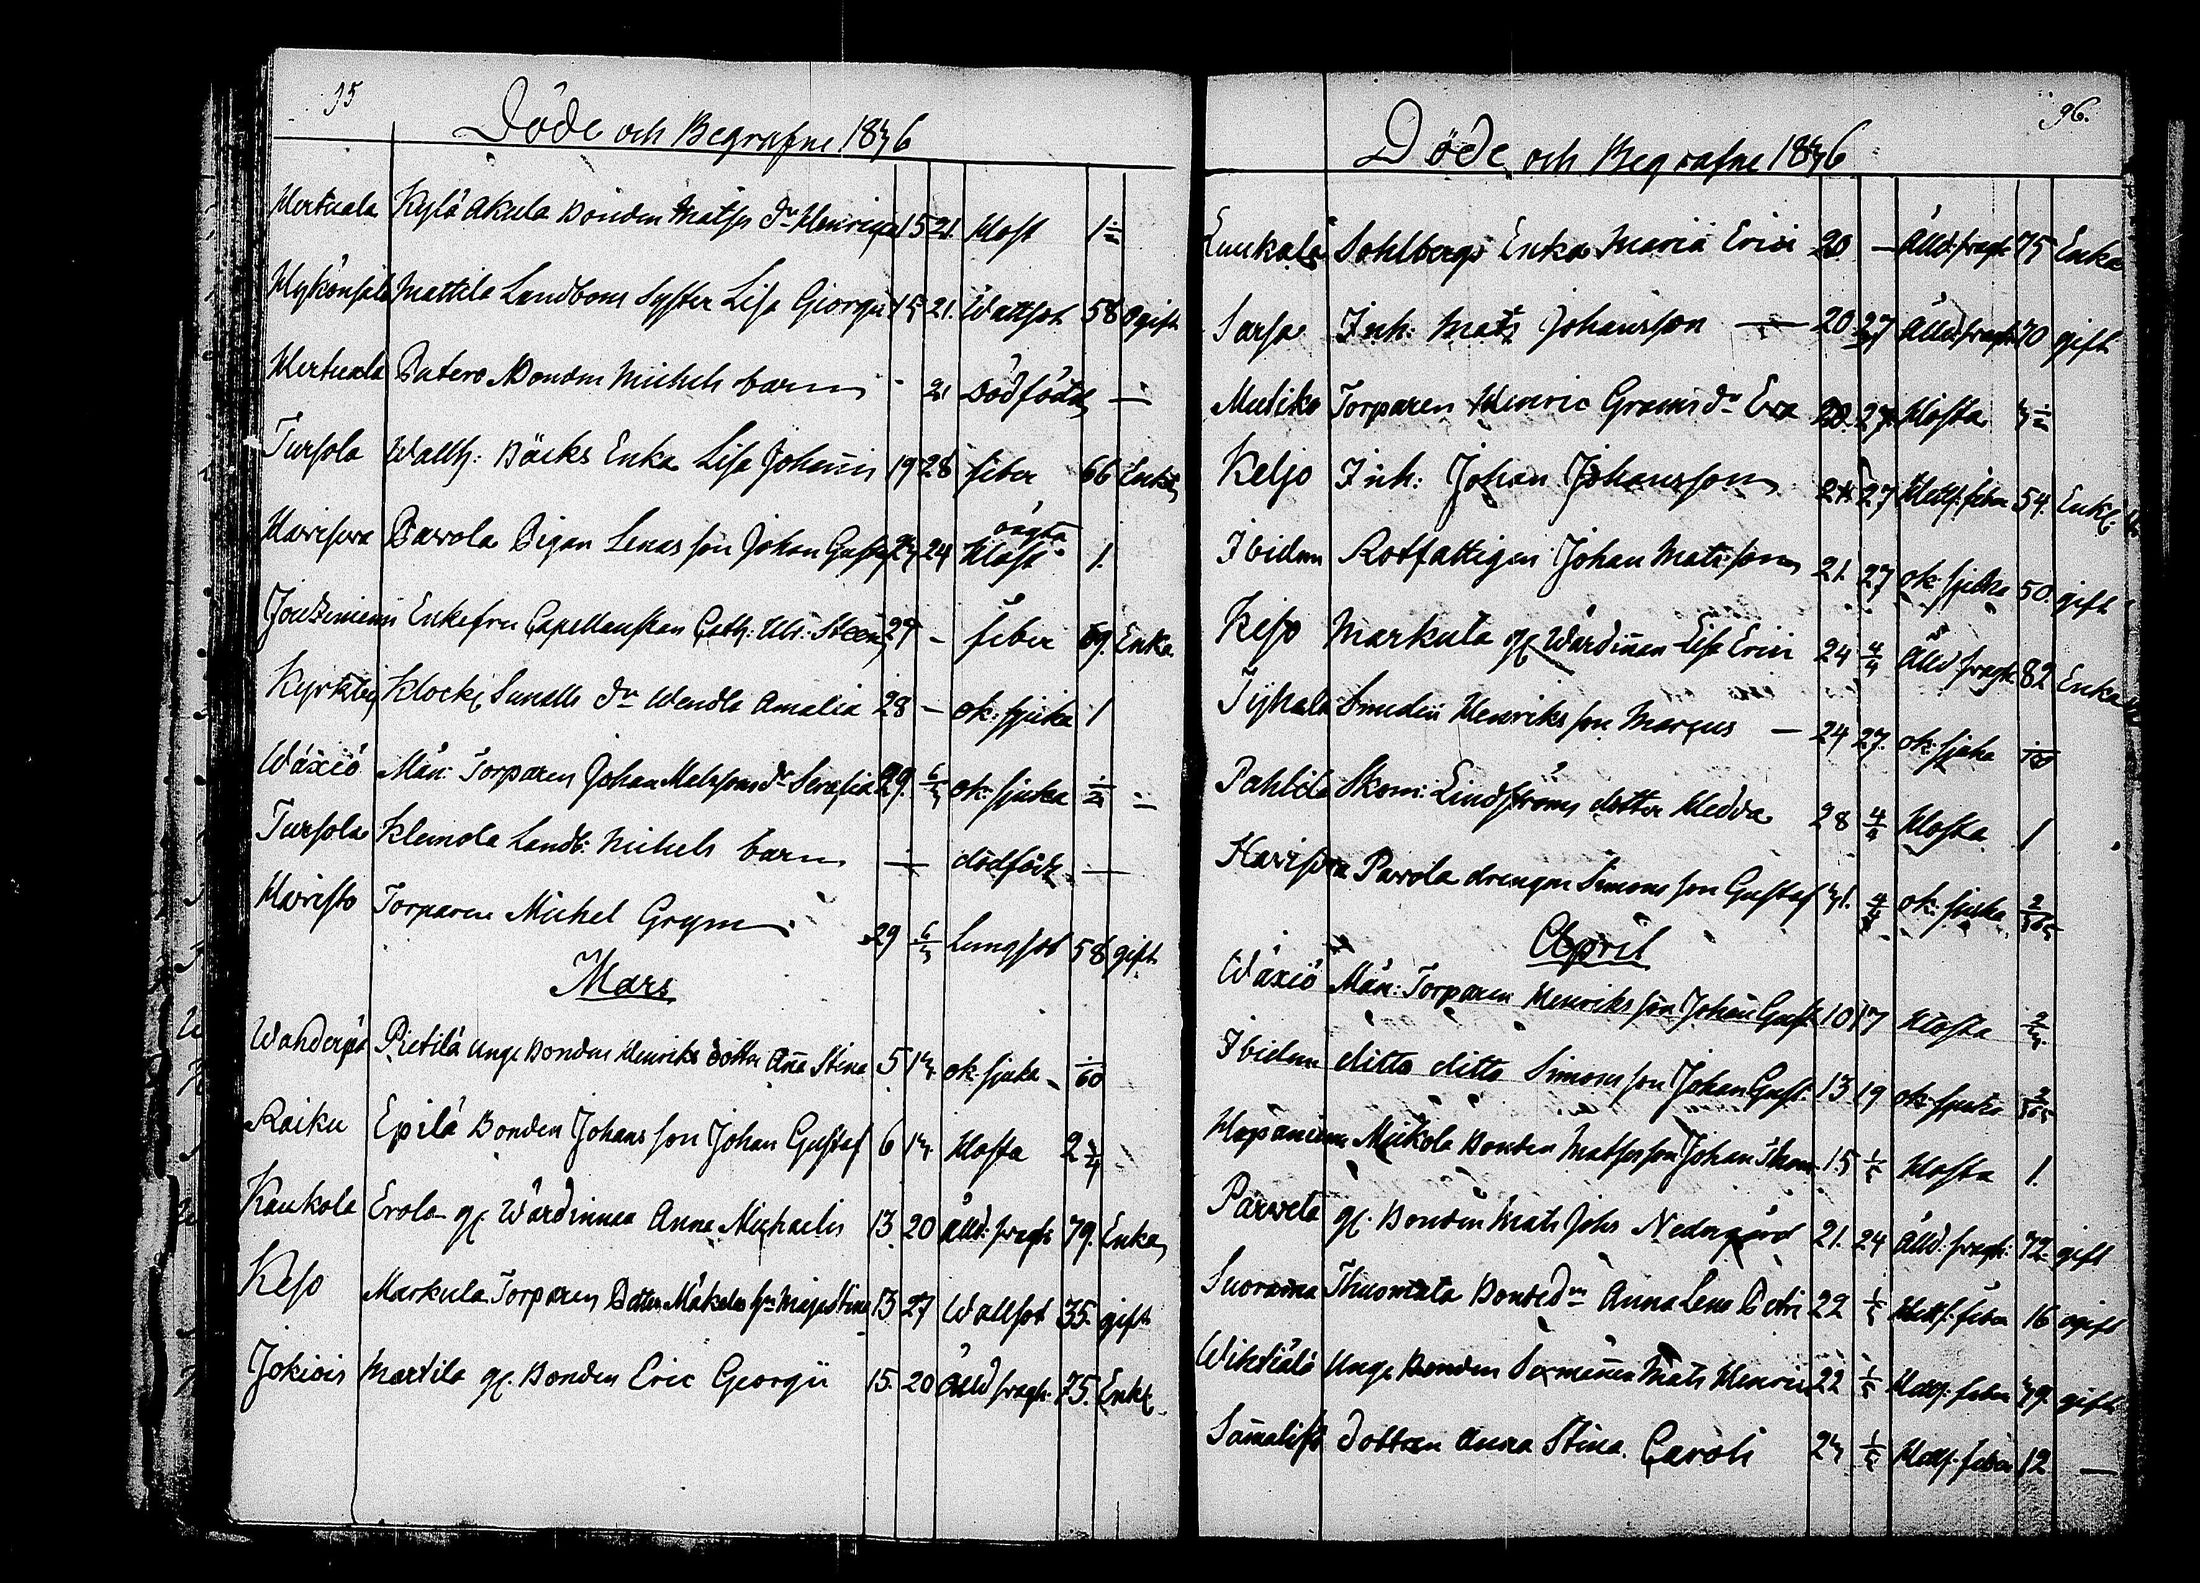 95
Döde och Begrafne 1836
Hertuala Kylä Akula Bonden Matts dr Henrica 15 21. Host 1 1/2
Hykönsala Mattila Landbons Syster Lisa Georgii 15 21. Wattsot 58 Ogift
Hertuala Patero Bonden Michels barn - 21 Dödfödt —
Tursola Wallb: Bäcks Enka Lisa Johannis 19 28 feber 66 Enka
Harisara Parvola Pigan Lenas son Johan Gustaf 23 24 oägta Host 1.
Enkefru Capellanskan Cath: Ulr: Steen 27 - feber 69. Enka.
Kyrkby Klock: Sunells dr Wendla Amalia 28 - ok: sjuka 1
Wäxiö Män: Torparen Johan Matssons dr Serafia 29. 6/3 ok: sjuka —
Tursola Klemola Landb: Michels barn — dödfödt —
Haristo Torparen Michel Grym 29 6/3 Lungsot 58 gift
Mars
Pietilä Unge Bonden Henriks dotter Anna Stina 5 13 ok: sjuka - /60
Raiku Epilä Bonden Johans son Johan Gustaf 6 13. Hosta 2 3/4
Kaukola Erola gl Wärdinnan Anna Michaelis 13. 20 Ålld: svagh: 79. Enka
Keso Markula Torparen Petter Mäkeläs hu Maja Stina 13 27 Wattsot 35. gift
Jokiois Martila gl. Bonden Eric Georgii 15. 20 Ålld svagh. 75. Enkl.
96.
Döde och Begrafne 1836
Sohlbergs Enka Maria Erici 20 — Ålld: svagh 75 Enka
Sarsa Inh: Mats Johansson — 20 27 Ålld: svagh 70 gift
Mutiko Torparen Henric Grams dr Eva 20. 27 Hosta
Keljo Inh: Johan Johansson 21 27 Hetts: feber 54. Enkl:
Ibidem Rotfattigen Johan Matsson 21. 27 ok: sjuka 50. gift
Keso Markula gl Wärdinnan Lisa Erici 24 4/4 Ålld svagh: 82 Enka
Smeden Henriks son Marcus — 24 27. ok: sjuka
Pahlila Skom: Lindströms dotter Hedda 28 4/4 Hosta. 1
Harisara Parvola drengen Simons son Gustaf 31. 4/4 ok: sjuka 2/365
April
Wäxiö Män: Torparen Henriks son Johan Gust: 10 17 Hosta
Ibidem ditto ditto Simons son Johan Gust: 13 19 ok: sjuka
Mickola Bonden Mats son Johan Thom: 15 1/5 Hosta 1.
Parvela gl. Bonden Mats Johs Nedergård 21. 24 Ålld: svagh: 72 gift
Anna Lena Petri 22 1/5 Hetts: feber 16 ogift
Unge Bonden Mats Henrici 22 1/5 Hetts: feber 39. gift
Dottren Anna Stina Caroli 23 1/5 Hetts: feber 12 —